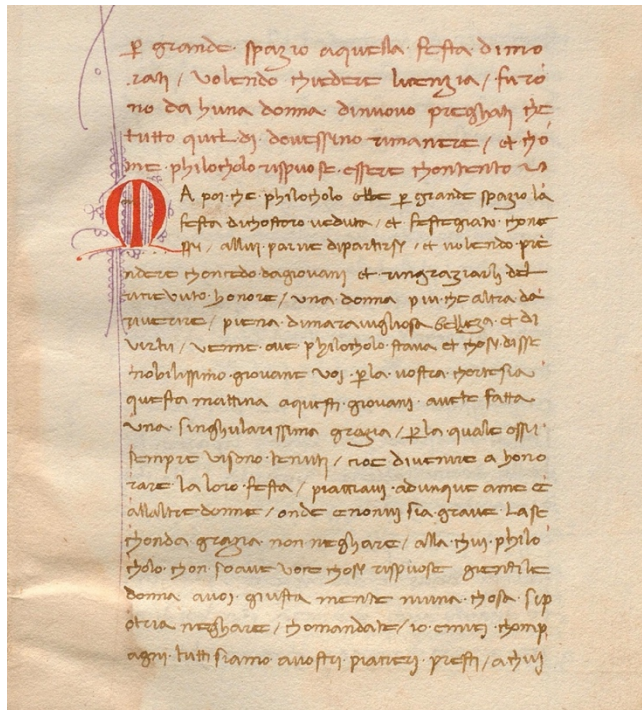 ꝑ grande · spazio aquella festa dimo
rati / volendo chiedere licenzia / furo
no da huna donna dinuovo preghati che
tutto quel di dovessino rimanere / et cho
me philocholo rispuose essere chontento
M A poi che philocholo ebbe ꝑ grande spazio la
festa dichostoro veduta / et festegiato chone
ssi / allui parve dipartirsi / et volendo pre
ndere choncedo dagiovani et ringraziarli del
ricievuto · honore / una donna piu che altra da
riverire / piena dimaravigliosa bellezza · et di
virtu / venne ove philocholo stava et chosi disse
nobilissimo · giovane voi ꝑla vostra chortesia
questa mattina aquesti giovani avete fatta
una singhularissima grazia / ꝑla quale essi ·
sempre visono tenuti / cioe divenire a hono
rare la loro festa / piacciavi · adunque ame e
allaltre donne / onde enonvi sia grave Lase
chonda grazia non neghare / alla chui philo
cholo chon soave voce chosi rispuose gientile
donna avoi giusta mente niuna · chosa · sip
otria neghare / chomandate / io emiei chomp
agni · tutti siamo avostri piaceri presti / achui